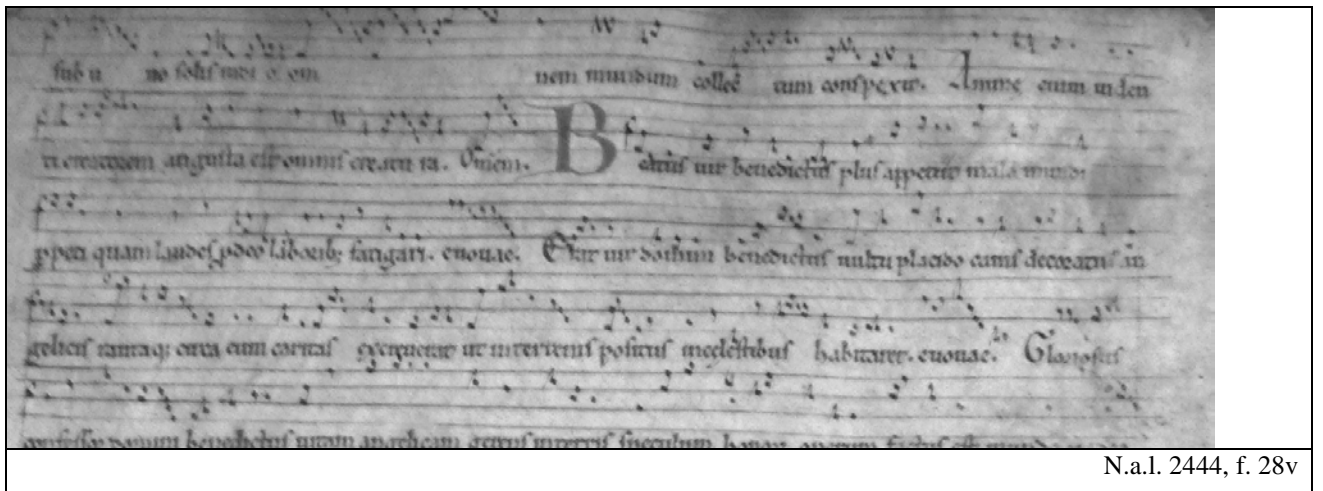 sub u no solis radi o om nem mundum collec tum conspexit. Anime enim viden
ti creatorem angusta est omnis creatu ra. Omnem. Beatus vir benedictus plus appetiit mala mundi
ppeti quam laudes p deo laborib; fatigari. euouae. Erat vir domini benedictus vultu placido canis decoratus an
gelicis tantaq; circa eum caritas ut in terris positus in celestibus habitaret. euouae. Gloriosus
confessor domini benedictus vitam angelicam gerens in terris speculum bonor operum factus est mundo
N.a.l. 2444, f. 28v